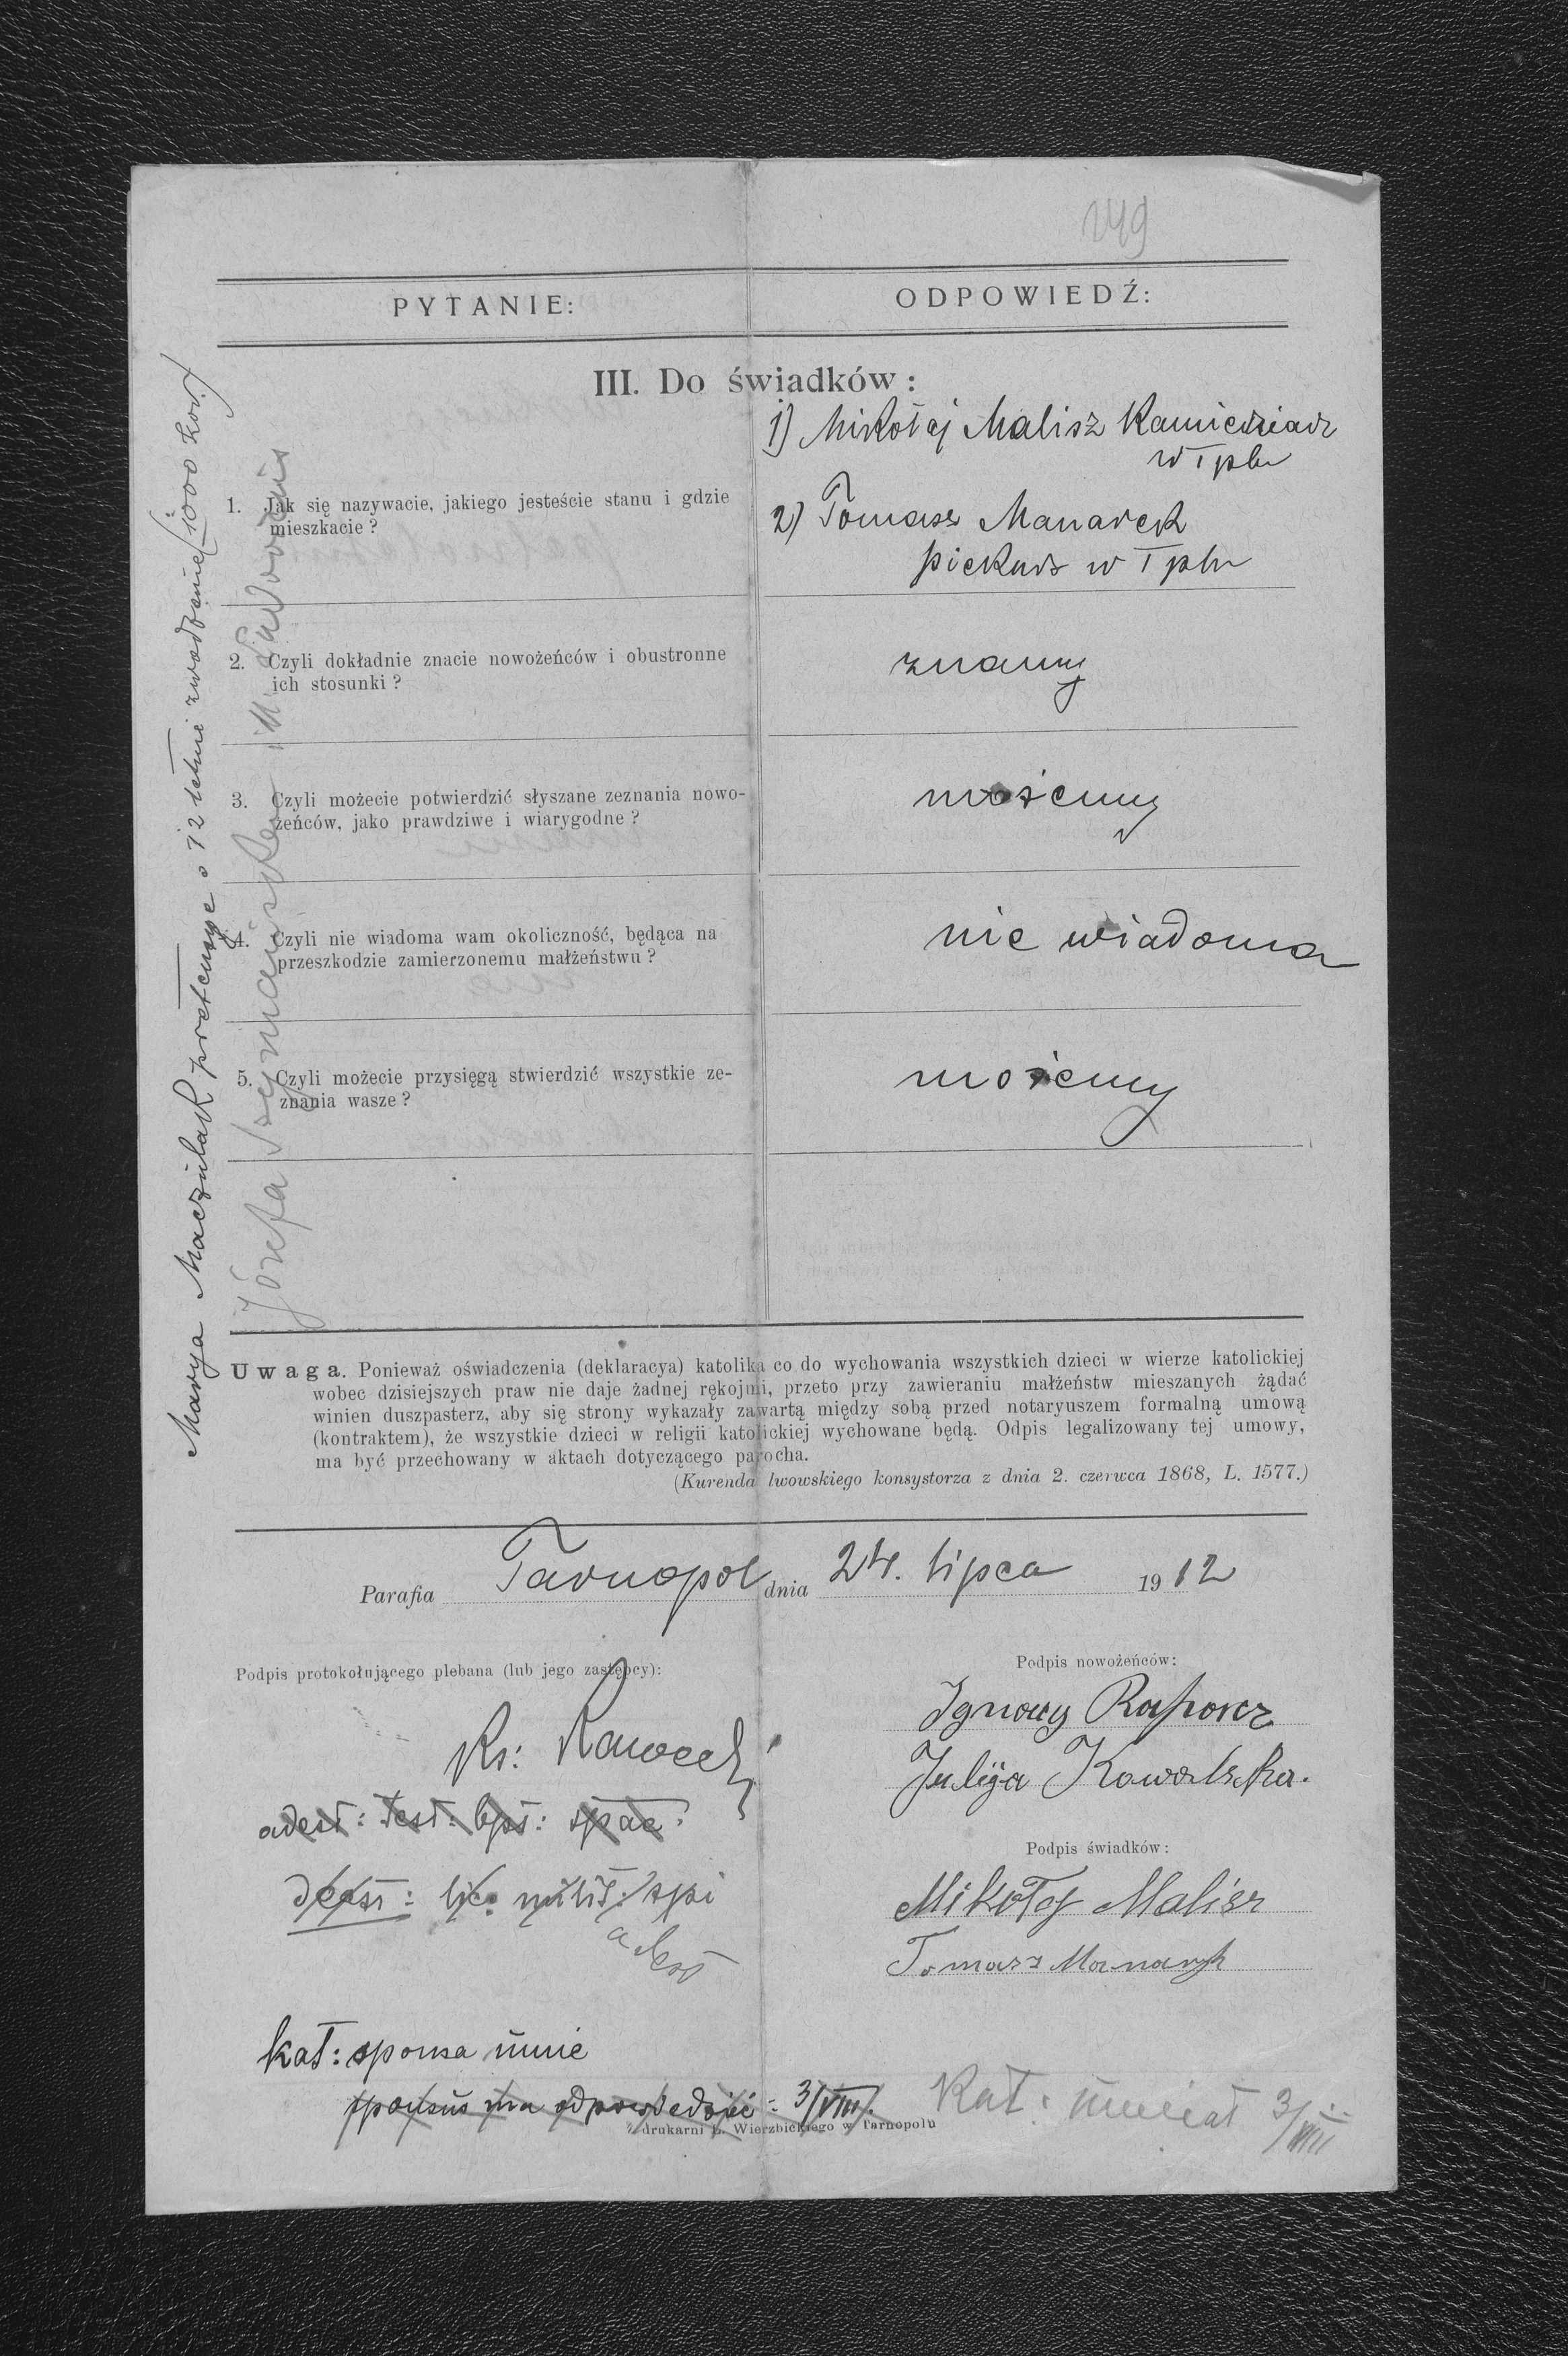 249
PYTANIE:
ODPOWIEDŹ:
III. Do świadków:
1) Mikołaj Malisz Kamieniarz
w Tplu
1. Jak się nazywacie, jakiego jesteście stanu i gdzie
mieszkacie?
2) Tomasz Manarek
piekarz w Tplu
2. Czyli dokładnie znacie nowożeńców i obustronne
ich stosunki?
znamy
3. Czyli możecie potwierdzić słyszane zeznania nowo-
żeńców, jako prawdziwe i wiarygodne?
możemy
4. Czyli nie wiadoma wam okoliczność, będąca na
przeszkodzie zamierzonemu małżeństwu?
nie wiadoma
5. Czyli możecie przysięgą stwierdzić wszystkie ze-
znania wasze?
możemy
Marya Maczulak pretensye o 12 letnie zwodzenie (1000 kor.)
Józefa i M.
Uwaga. Ponieważ oświadczenia (deklaracya) katolika co do wychowania wszystkich dzieci w wierze katolickiej
wobec dzisiejszych praw nie daje żadnej rękojmi, przeto przy zawieraniu małżeństw mieszanych żądać
winien duszpasterz, aby się strony wykazały zawartą między sobą przed notaryuszem formalną umową
(kontraktem), że wszystkie dzieci w religii katolickiej wychowane będą. Odpis legalizowany tej umowy,
ma być przechowany w aktach dotyczącego parocha.
(Kurenda lwowskiego konsystorza z dnia 2. czerwca 1868, L. 1577.)
Parafia Tarnopol dnia 24. lipca 1912
Podpis protokołującego plebana (lub jego zastępcy):
Podpis nowożeńców:
Ks:
Ignacy Raporz
Julija Kowalska.
adest: test: bpt: spae:
Podpis świadków:
deest: lic: milit: spi
adest
Mikołaj Malisz
Tomasz Manaryk
kat: sponsa umie
sponsus ma odpowiedzieć: 3/VIII.
Kat: umieiał 3/VIII
Z drukarni L. Wierzbickiego w Tarnopolu